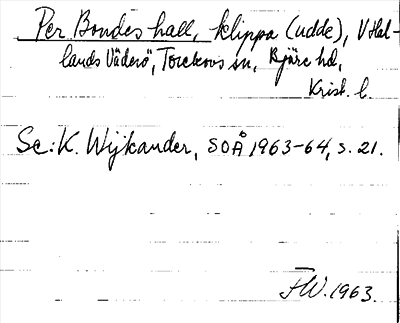 Per Bondes hall, klippa (udde), V Hal-
lands Väderö, Torekovs sn, Bjäre hd,
Krist. l.
Se: K. Wijkander, SOÅ 1963-64, s. 21.
FW. 1963.